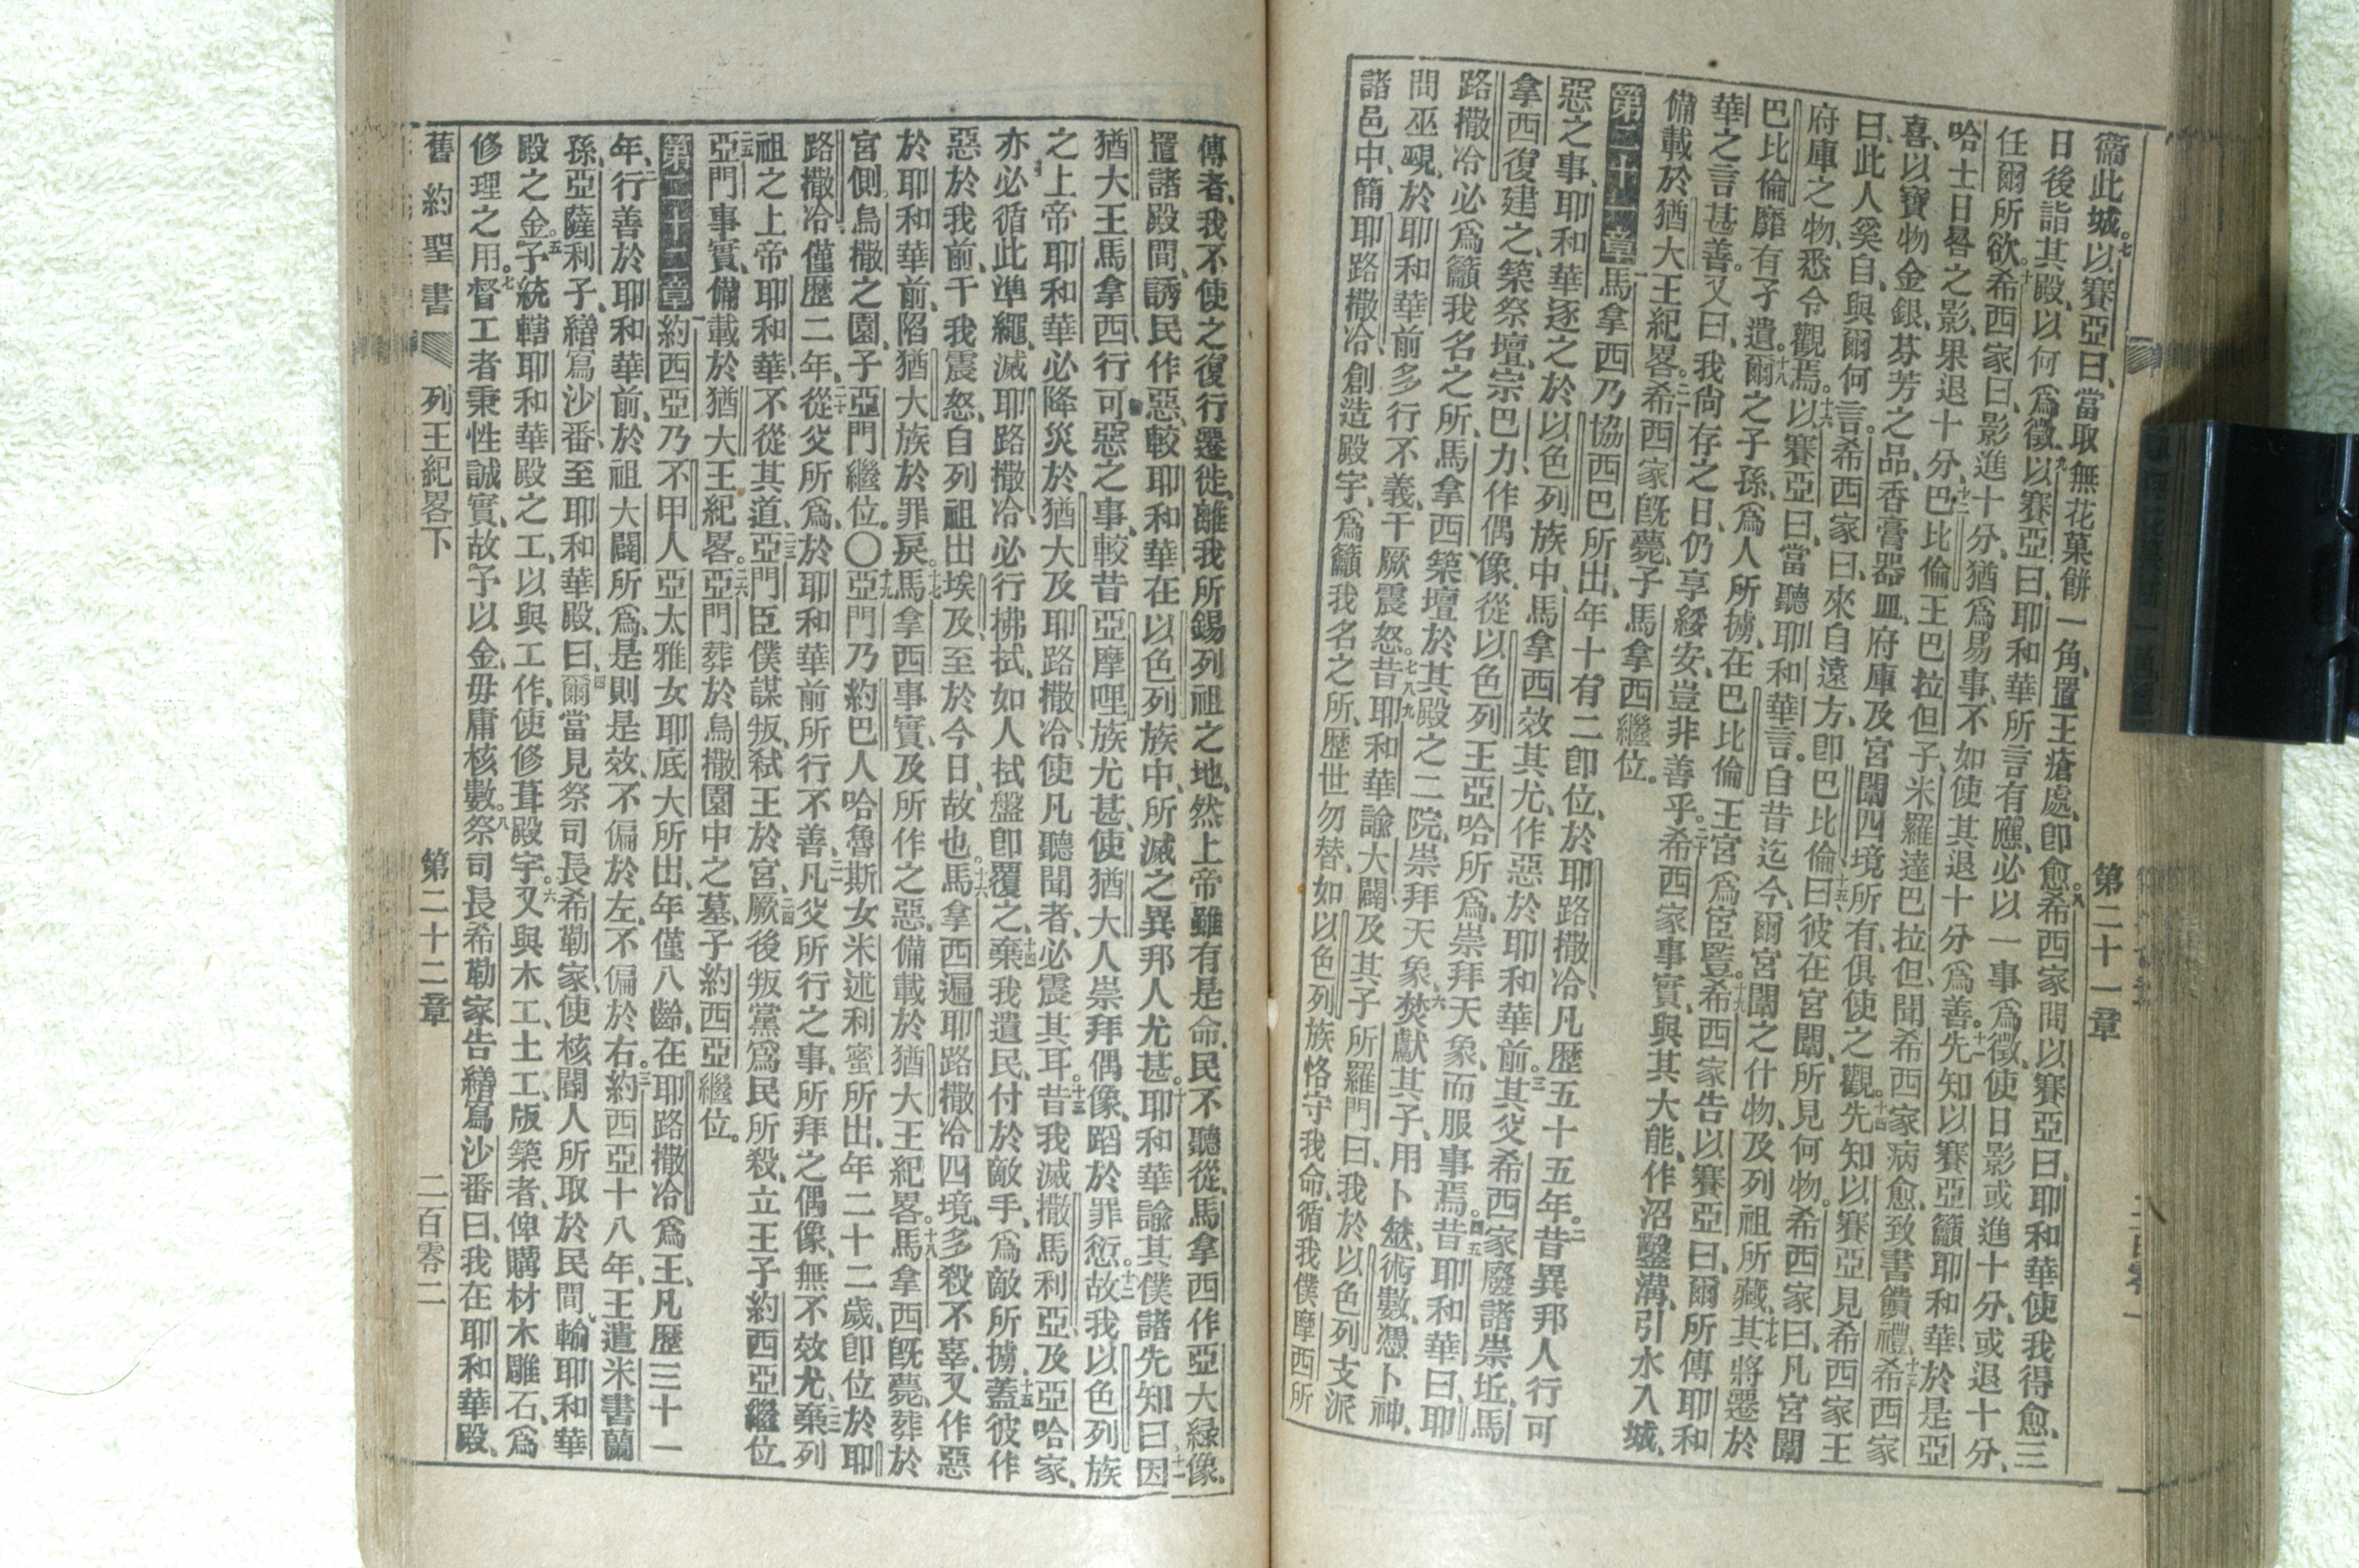 第二十一章
衞此城。七以賽亞曰、當取無花菓餠一角、置王瘡處、卽愈。八希西家問以賽亞曰、耶和華使我得愈、三
日後詣其殿、以何爲徵。九以賽亞曰、耶和華所言有應、必以一事爲徵、使日影或進十分、或退十分、
任爾所欲。十希西家曰、影進十分、猶爲易事、不如使其退十分爲善。十一先知以賽亞籲耶和華、於是亞
哈士日晷之影、果退十分。十二巴比倫王巴拉但子、米羅達巴拉但、聞希西家病愈、致書饋禮、十三希西家
喜、以寶物金銀、芬芳之品、香膏器皿、府庫及宮闈四境所有、俱使之觀。十四先知以賽亞見希西家王
曰、此人奚自、與爾何言。希西家曰、來自遠方、卽巴比倫。十五曰、彼在宮闈、所見何物。希西家曰、凡宮闈
府庫之物、悉令觀焉。十六以賽亞曰、當聽耶和華言。自昔迄今、爾宮闈之什物、及列祖所藏、十七其將遷於
巴比倫、靡有孑遺。十八爾之子孫、爲人所擄、在巴比倫王宮爲宦豎。十九希西家告以賽亞曰、爾所傳耶和
華之言甚善。又曰、我尙存之日、仍享綏安、豈非善乎。二十希西家事實、與其大能、作沼鑿溝、引水入城、
備載於猶大王紀畧。二一希西家旣薨、子馬拿西繼位。
第二十一章 一馬拿西乃協西巴所出、年十有二卽位、於耶路撒冷、凡歷五十五年。二昔異邦人行可
惡之事、耶和華逐之於以色列族中、馬拿西效其尤、作惡於耶和華前。三其父希西家廢諸崇坵、馬
拿西復建之、築祭壇、宗巴力、作偶像、從以色列王亞哈所爲、崇拜天象、而服事焉。四五昔耶和華曰、耶
路撒冷必爲籲我名之所、馬拿西築壇於其殿之二院、崇拜天象、六焚獻其子、用卜筮術數、憑卜神、
問巫覡、於耶和華前多行不義、干厥震怒。七八九昔耶和華諭大闢、及其子所羅門曰、我於以色列支派
諸邑中、簡耶路撒冷、創造殿宇、爲籲我名之所、歷世勿替、如以色列族恪守我命、循我僕摩西所
傳者、我不使之復行遷徙、離我所錫列祖之地、然上帝雖有是命、民不聽從、馬拿西作亞大緑像、
置諸殿間、誘民作惡、較耶和華在以色列族中、所滅之異邦人尤甚。十耶和華諭其僕諸先知曰、十一因
猶大王馬拿西、行可惡之事、較昔亞摩哩族尤甚、使猶大人崇拜偶像、蹈於罪愆。十二故我以色列族
之上帝耶和華、必降災於猶大及耶路撒冷、使凡聽聞者、必震其耳。十三昔我滅撒馬利亞、及亞哈家、
亦必循此準繩、滅耶路撒冷、必行拂拭、如人拭盤卽覆之、十四棄我遺民、付於敵手、爲敵所擄、十五蓋彼作
惡於我前、干我震怒、自列祖出埃及、至於今日、故也。十六馬拿西遍耶路撒冷四境、多殺不辜、又作惡
於耶和華前、陷猶大族於罪戾。十七馬拿西事實、及所作之惡、備載於猶大王紀畧。十八馬拿西旣薨、葬於
宮側烏撒之園、子亞門繼位。〇十九亞門乃約巴人哈魯斯女米述利蜜所出、年二十二歲、卽位於耶
路撒冷、僅歷二年、二十從父所爲、於耶和華前所行不善、二一凡父所行之事、所拜之偶像、無不效尤、二二棄列
祖之上帝耶和華、不從其道、二三亞門臣僕謀叛、弒王於宮、二四厥後叛黨爲民所殺、立王子約西亞繼位。
二五亞門事實、備載於猶大王紀畧。二六亞門葬於烏撒園中之墓、子約西亞繼位。
第二十二章 一約西亞乃不甲人亞太雅女耶底大所出、年僅八齡、在耶路撒冷爲王、凡歷三十一
年、二行善於耶和華前、於祖大闢所爲、是則是效、不偏於左、不偏於右。三約西亞十八年、王遣米書蘭
孫、亞薩利子、繕寫沙番、至耶和華殿、曰、四爾當見祭司長希勒家、使核閽人所取於民間、輸耶和華
殿之金。五予統轄耶和華殿之工、以與工作、使修葺殿宇。六又與木工、土工、版築者、俾購材木雕石、爲
修理之用。七督工者秉性誠實、故予以金、毋庸核數。八祭司長希勒家告繕寫沙番曰、我在耶和華殿、
舊約聖書 列王紀畧下 第二十二章 二百零二